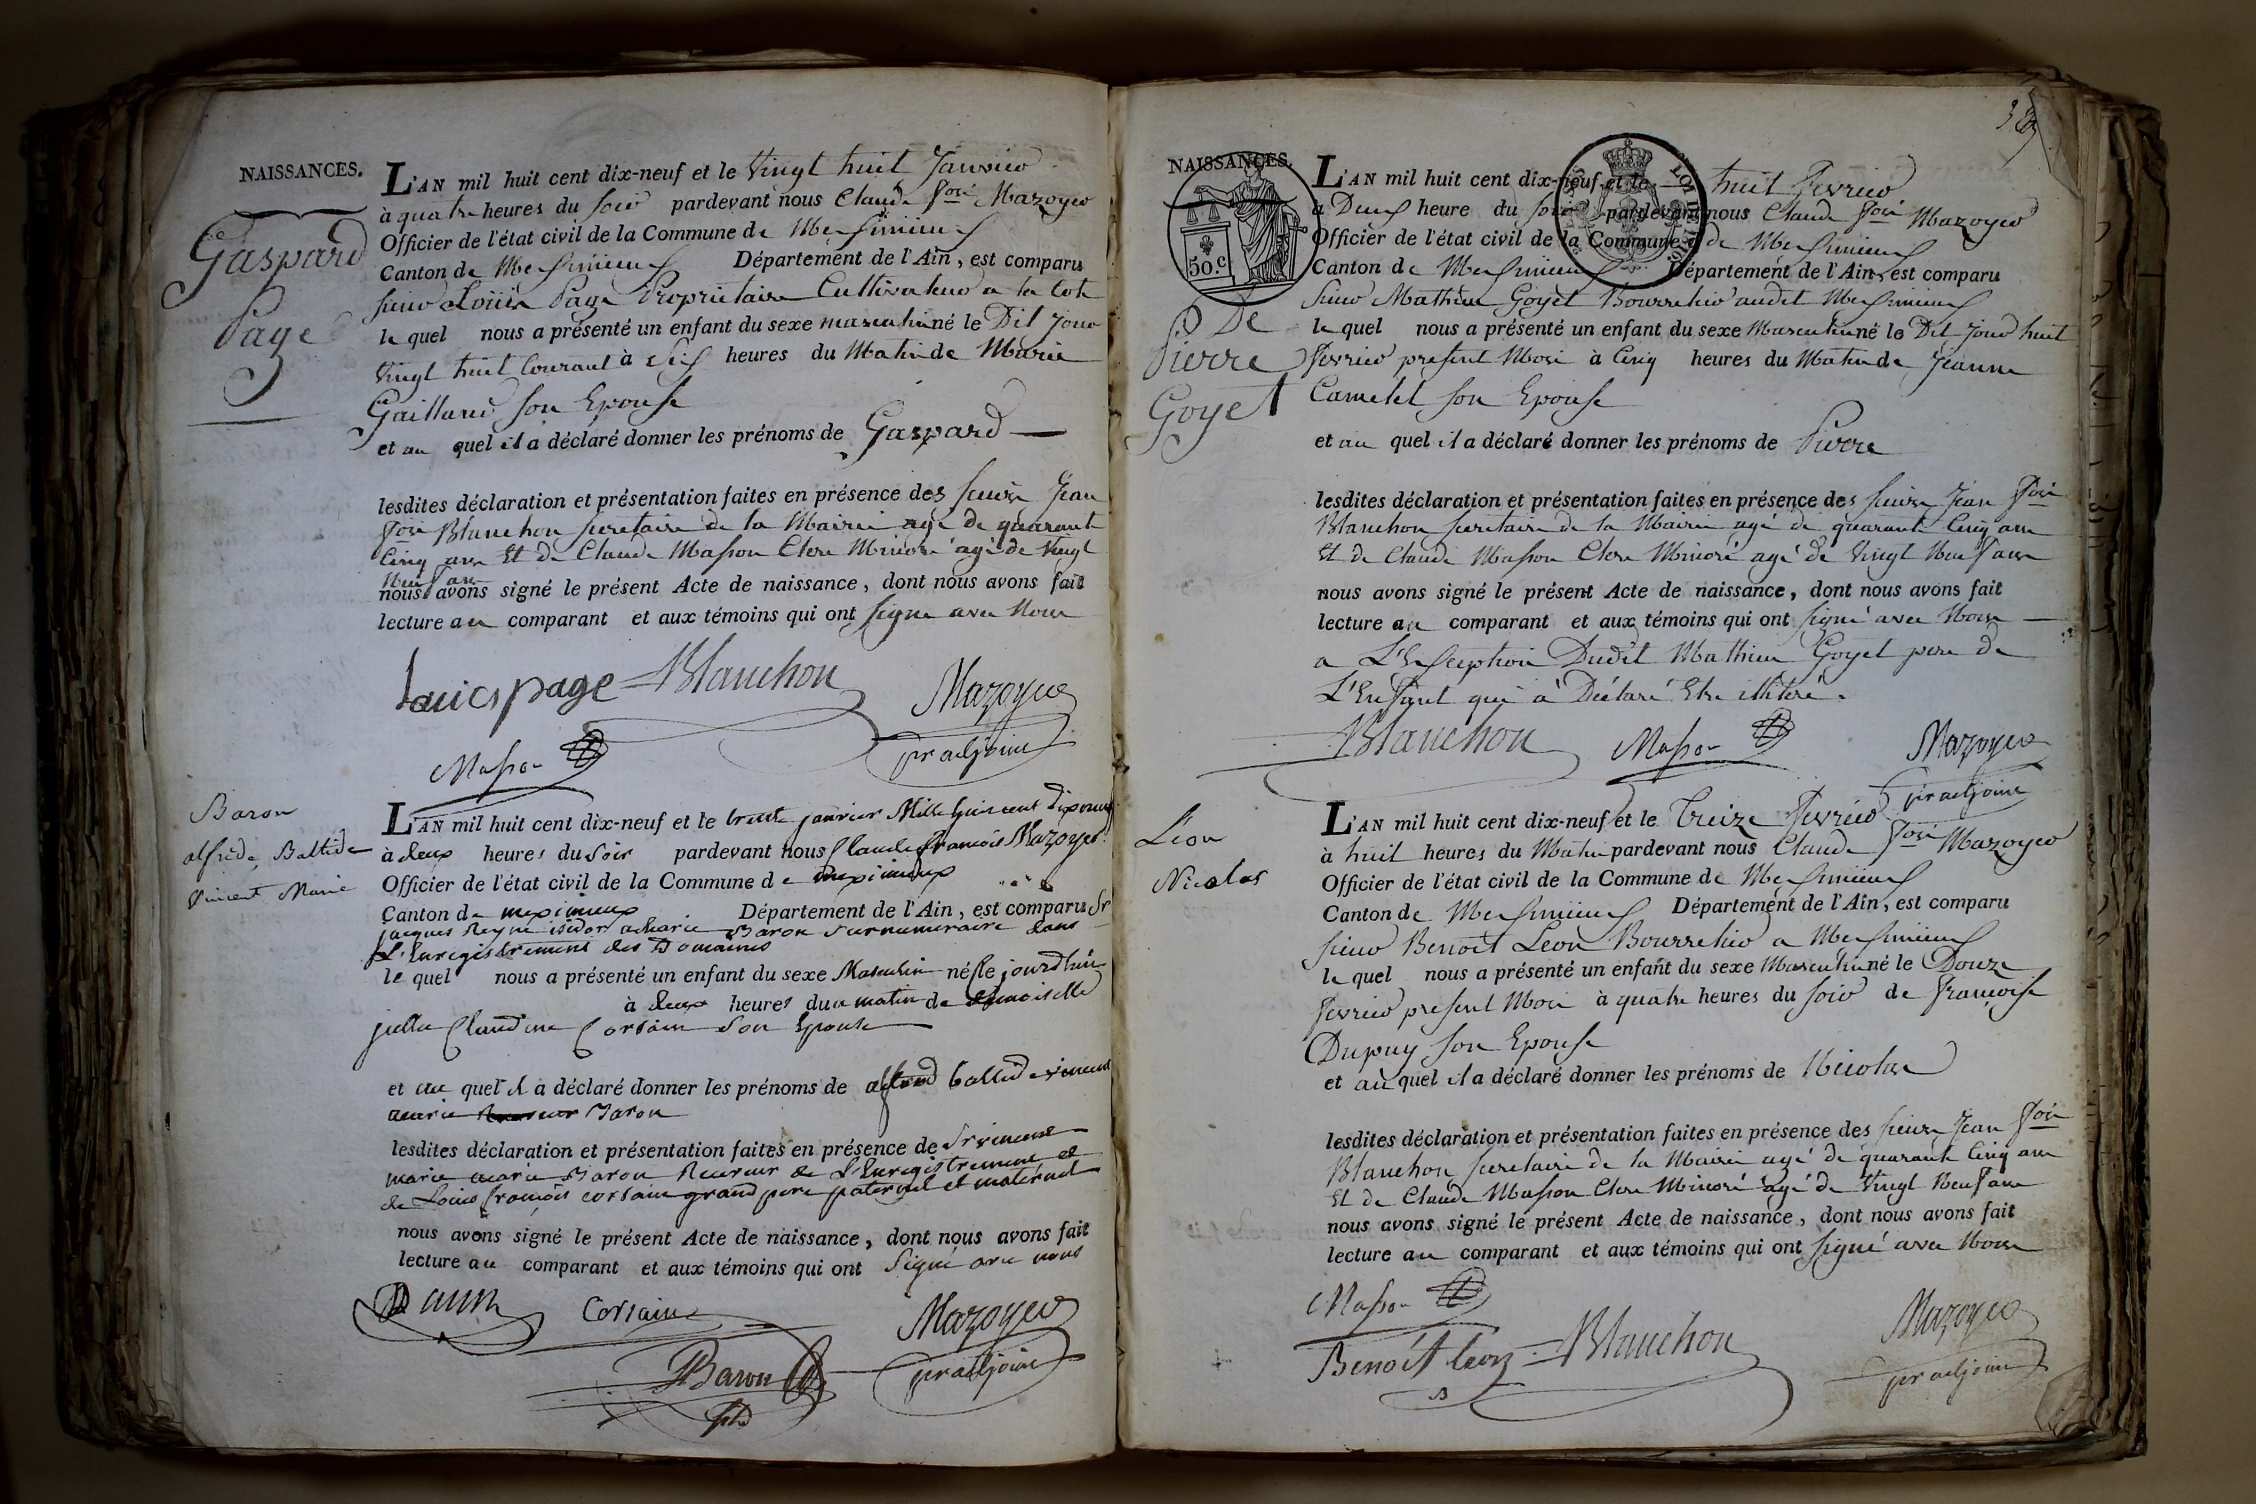 NAISSANCES.
Gaspard
Page
L'AN mil huit cent dix-neuf et le Vingt huit Janvier
à quatre heures du soir pardevant nous Claude fois Mazoyer
Officier de l'état civil de la Commune de Meximieux
Canton de Meximieux Département de l'Ain, est comparu
sieur Louis Page Propriétaire Cultivateur a la Cote
le quel nous a présenté un enfant du sexe masculin né le Dit jour
Vingt huit Courant à Six heures du Matin de Marie
Gaillard son Epouse
et au quel il a déclaré donner les prénoms de Gaspard
lesdites déclaration et présentation faites en présence des sieurs Jean
fois Blanchon secretaire de la Mairie agé de quarante
Cinq ans Et de Claude Masson Clerc Minoré agé de Vingt
Neuf ans
nous avons signé le présent Acte de naissance, dont nous avons fait
lecture au comparant et aux témoins qui ont signé avec Nous
Louis page Blanchon Mazoyer
Masson pr adjoint
Baron
alfrède Baltide
Vincent Marie
L'AN mil huit cent dix-neuf et le trente janvier Mille huit cent dix neuf
à deux heures du Soir pardevant nous Claude françois Mazoyer
Officier de l'état civil de la Commune de meximieux
Canton de meximieux Département de l'Ain, est comparu Sr
jacques Baron Surnumeraire dans
L'Enregistrement des Domaines
le quel nous a présenté un enfant du sexe Masculin né le jourdhui
à deux heures du matin de demoiselle
julie Claudine Corsain Son Epouse
et au quel il a déclaré donner les prénoms de alfred baltide vincent
marie Baron
lesdites déclaration et présentation faites en présence de Sr vincent
marie Baron Receveur de L'Enregistrement et
de Louis françois corsain grand pere paternel et maternel
nous avons signé le présent Acte de naissance, dont nous avons fait
lecture au comparant et aux témoins qui ont Signé avec nous
Corsain Mazoyer
Baron pr adjoint
NAISSANCES.
50.c
LOI DE 1816
De
Pierre
Goyet
L'AN mil huit cent dix-neuf et le huit fevrier
à Deux heure du soir pardevant nous Claude fois Mazoyer
Officier de l'état civil de la Commune de Meximieux
Canton de Meximieux Département de l'Ain, est comparu
sieur Mathieu Goyet Bourrelier audit Meximieux
le quel nous a présenté un enfant du sexe Masculin né le Dit Jour huit
fevrier present Mois à Cinq heures du Matin de Jeanne
Camelet son Epouse
et au quel il a déclaré donner les prénoms de Pierre
lesdites déclaration et présentation faites en présence des sieurs Jean fois
Blanchon secretaire de la Mairie agé de quarante Cinq ans
Et de Claude Masson Clerc Minoré agé de Vingt Neuf ans
nous avons signé le présent Acte de naissance, dont nous avons fait
lecture au comparant et aux témoins qui ont signé avec Nous
a L'Exception Dudit Mathieu Goyet pere de
L'Enfant qui a Déclaré Etre illitéré.
Blanchon Masson Mazoyer
pr adjoint
Léon
Nicolas
L'AN mil huit cent dix-neuf et le Treize fevrier
à huit heures du Matin pardevant nous Claude fois Mazoyer
Officier de l'état civil de la Commune de Meximieux
Canton de Meximieux Département de l'Ain, est comparu
sieur Benoit Leon Bourrelier a Meximieux
le quel nous a présenté un enfant du sexe Masculin né le Douze
fevrier present Mois à quatre heures du soir de françoise
Dupuy son Epouse
et au quel il a déclaré donner les prénoms de Nicolas
lesdites déclaration et présentation faites en présence des sieurs Jean fois
Blanchon secretaire de la Mairie agé de quarante Cinq ans
Et de Claude Masson Clerc Minoré agé de Vingt Neuf ans
nous avons signé le présent Acte de naissance, dont nous avons fait
lecture au comparant et aux témoins qui ont signé avec Nous
Masson Mazoyer
Benoit leon Blanchon pr adjoint